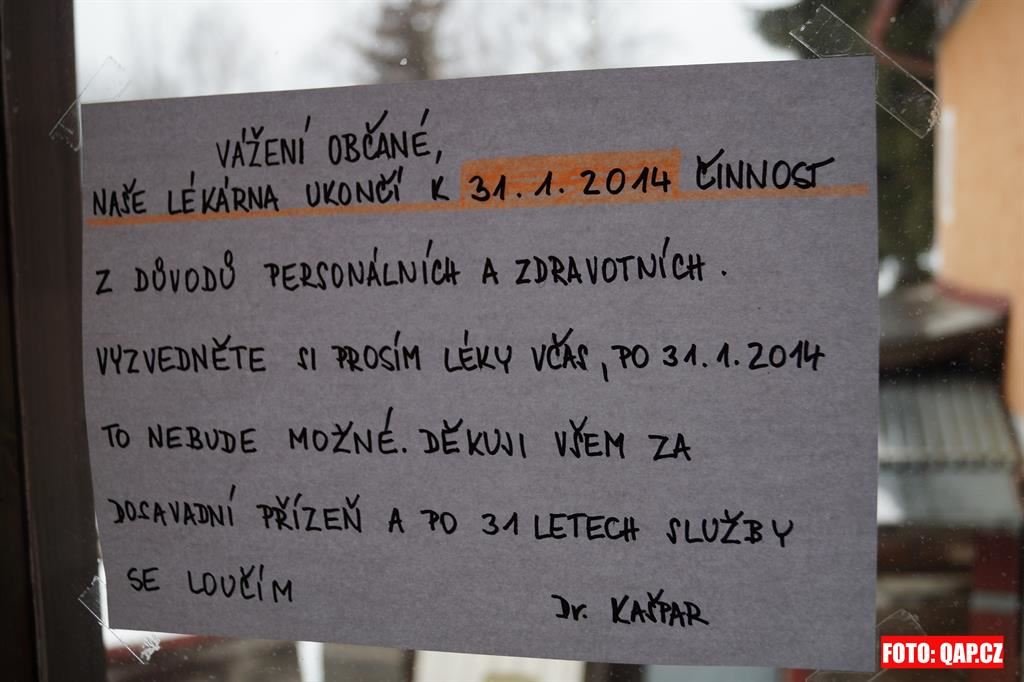 VÁŽENÍ OBČANÉ,
NAŠE LÉKÁRNA UKONČÍ K 31.1.2014 ČINNOST
Z DŮVODŮ PERSONÁLNÍCH A ZDRAVOTNÍCH.
VYZVEDNĚTE SI PROSÍM LÉKY VČAS, PO 31.1.2014
TO NEBUDE MOŽNÉ. DĚKUJI VŠEM ZA
DOSAVADNÍ PŘÍZEŇ A PO 31 LETECH SLUŽBY
SE LOUČÍM
Dr. KAŠPAR
FOTO: QAP.CZ